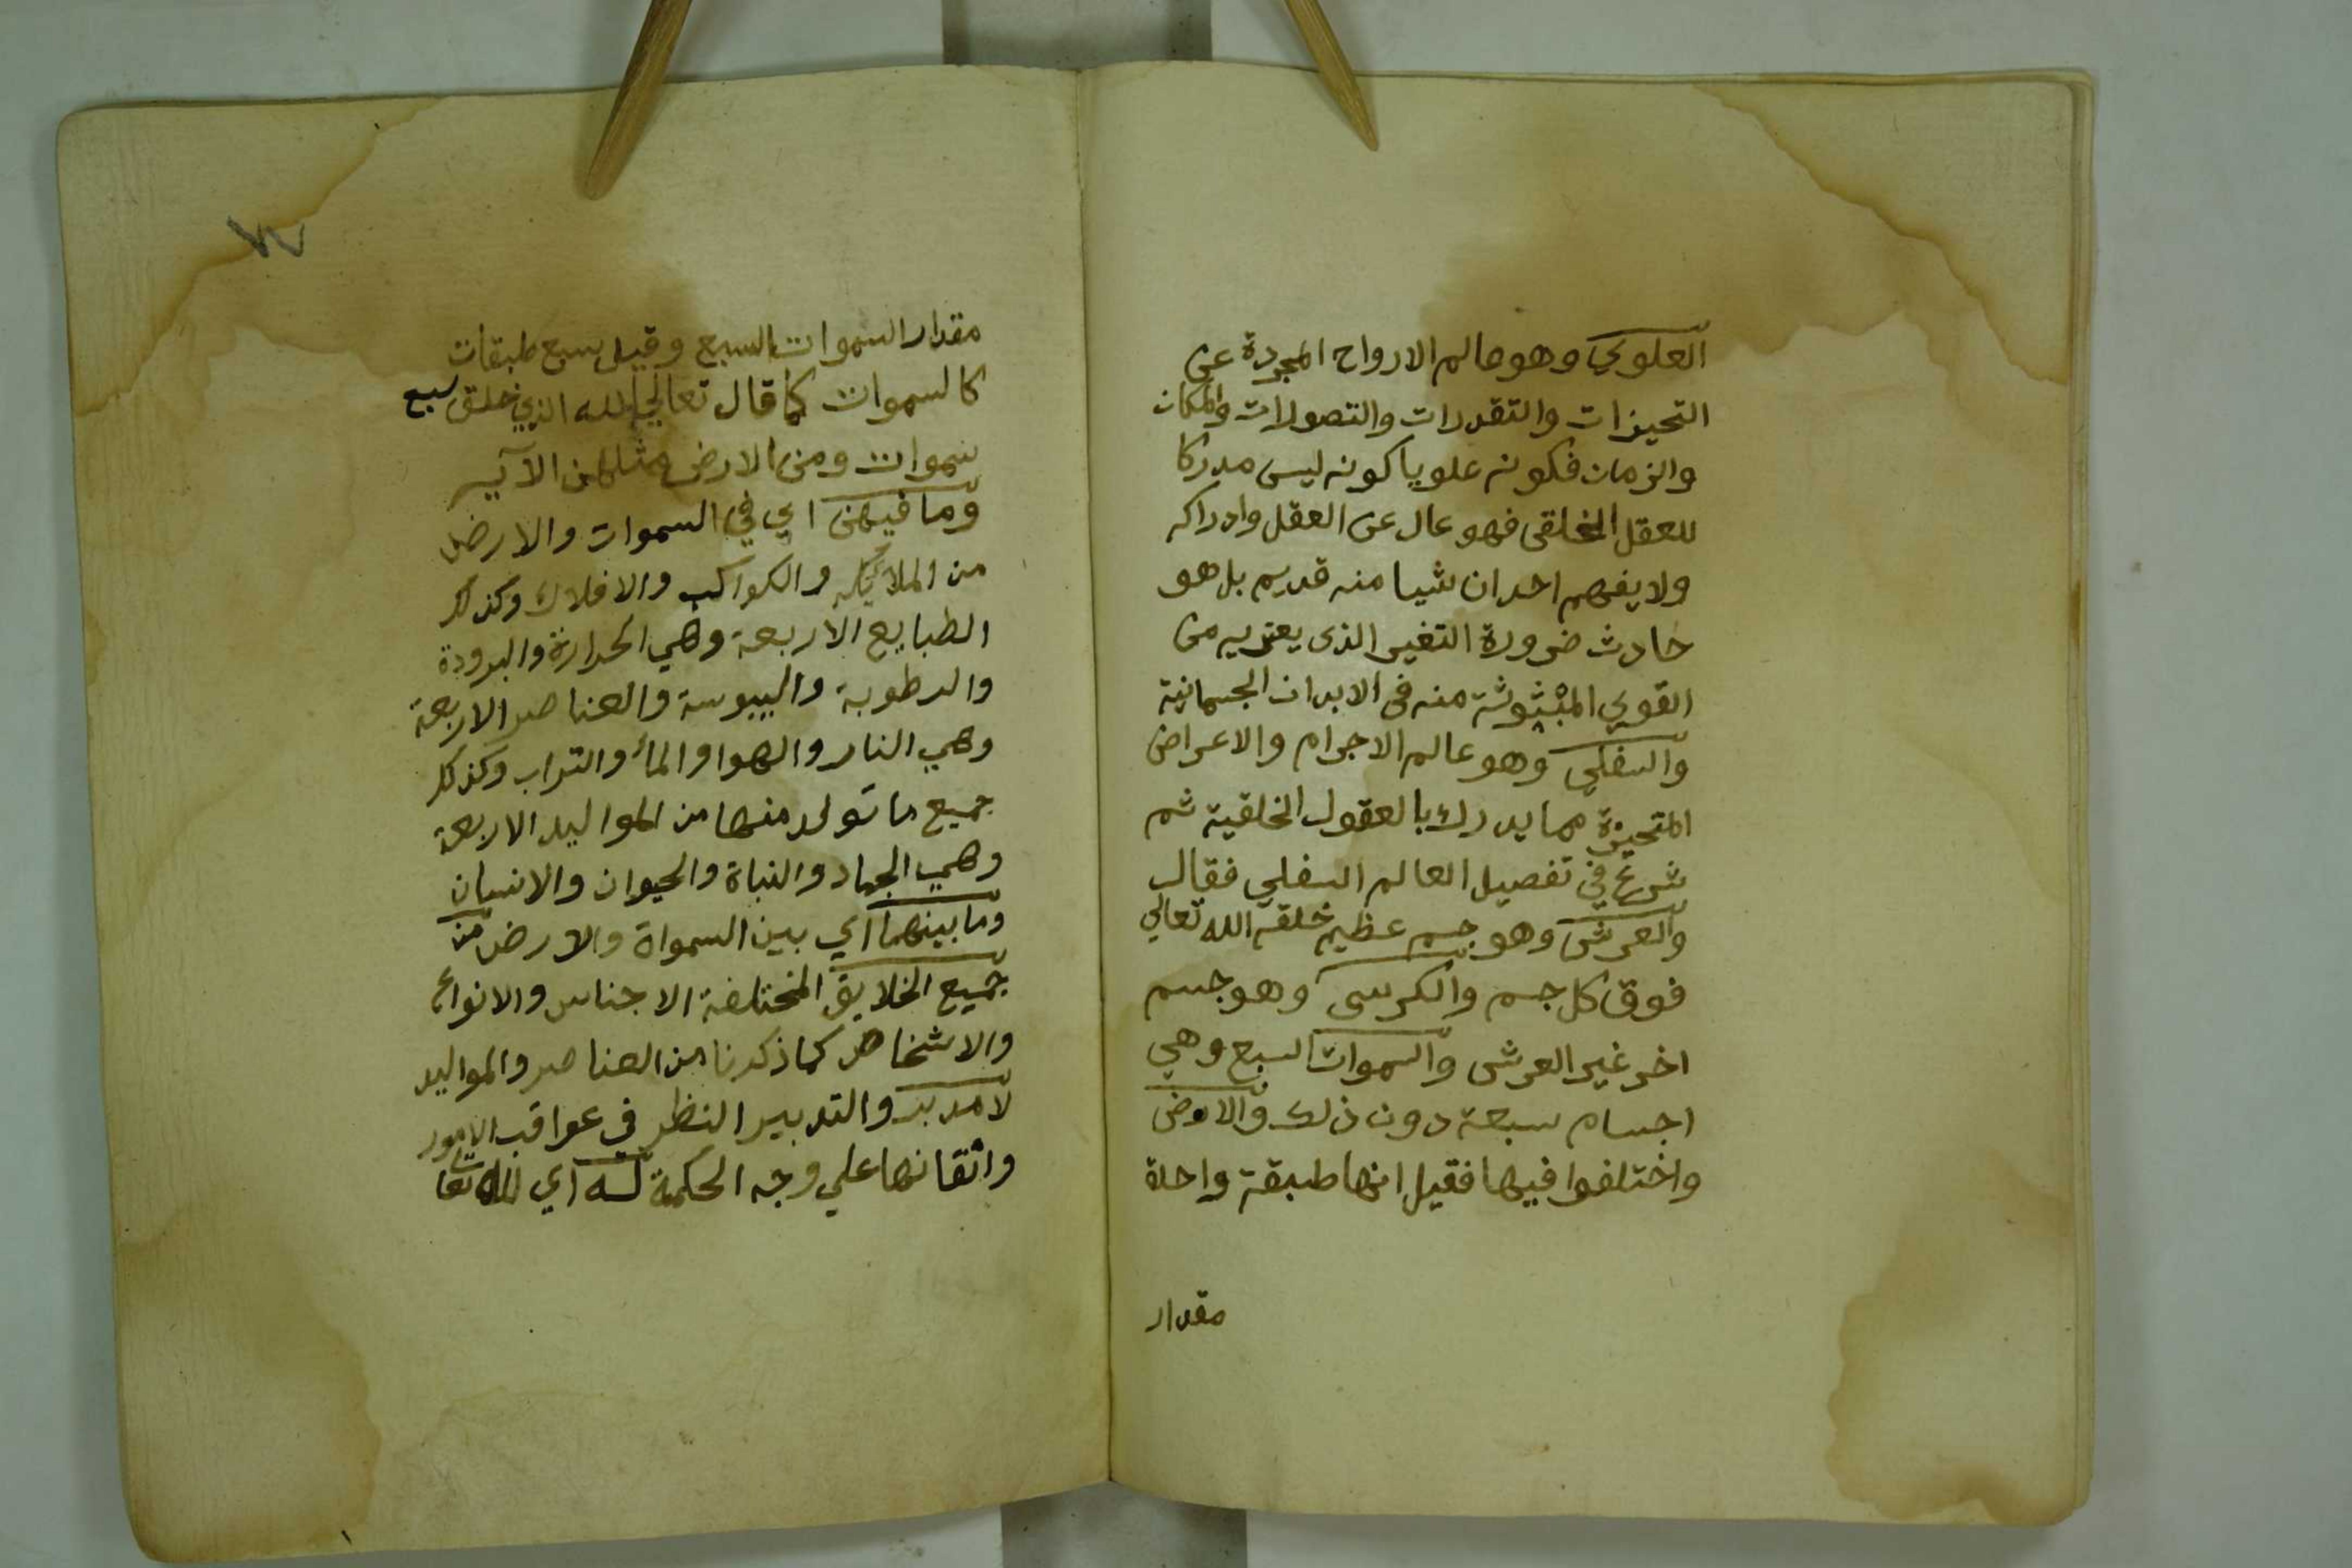 العلوي وهو عالم الارواح المجردة عن
التحيزات والتقدرات والتصولات والمكان
والزمان فكونه علويا كونه ليس مدركا
للعقل الخلقى فهو عال عن العقل وادراكه
ولا يفهم احد ان شيا منه قديم بل هو
حادث ضرورة التغير الذى يعتريه من
القوي المبثوثة منه فى الابدان الجسمانية
والسفلي وهو عالم الاجرام والاعراض
المتحيزة مما يدرك بالعقول الخلقية ثم
شرع في تفصيل العالم السفلي فقال
والعرش وهو جسم عظيم خلقه الله تعالي
فوق كل جسم والكرسى وهو جسم
اخر غير العرش والسموات السبع وهي
اجسام سبعة دون ذلك والارض
واختلفوا فيها فقيل انها طبقة واحدة
مقدار
٧٧
مقدار السموات السبع وقيل سبع طبقات
كالسموات كما قال تعالي الله الذي خلق سبع
سموات ومن الارض مثلهن الآيه
وما فيهن اي في السموات والارض
من الملائكة والكواكب والافلاك وكذلك
الطبايع الاربعة وهي الحرارة والبرودة
والرطوبة واليبوسة والعناصر الاربعة
وهي النار والهوا والمأ والتراب وكذلك
جميع ما تولد منها من المواليد الاربعة
وهي الجماد والنباة والحيوان والانسان
وما بينهما اي بين السمواة والارض من
جميع الخلايق المختلفة الاجناس والانواع
والاشخاص كما ذكرنا من العناصر والمواليد
لا مدبر والتدبير النظر في عواقب الامور
واتقانها علي وجه الحكمة له اي لله تعا